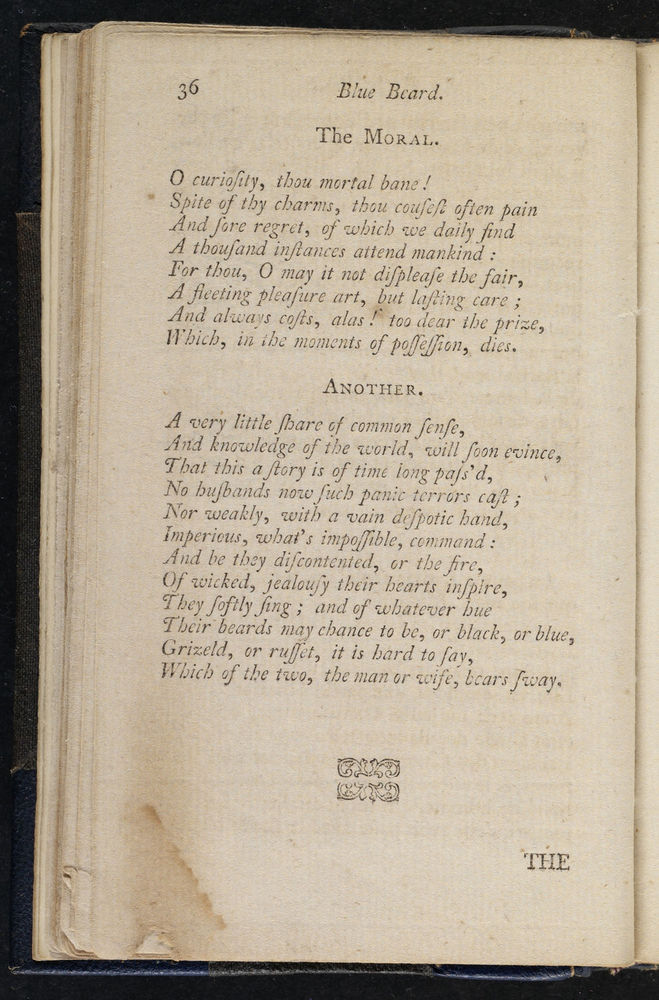 36 Blue Beard.
The MORAL.
O curioſity, thou mortal bane!
Spite of thy charms, thou couſeſt often pain
And ſore regret, of which we daily find
A thouſand inſtances attend mankind:
For thou, O may it not diſpleaſe the fair,
A fleeting pleaſure art, but laſting care;
And always coſts, alas! too dear the prize,
Which, in the moments of poſſeſſion, dies.
ANOTHER.
A very little ſhare of common ſenſe,
And knowledge of the world, will ſoon evince,
That this a ſtory is of time long paſs'd,
No huſbands now ſuch panic terrors caſt;
Nor weakly, with a vain deſpotic hand,
Imperious, what's impoſſible, command:
And be they diſcontented, or the fire,
Of wicked, jealouſy their hearts inſpire,
They ſoftly ſing; and of whatever hue
Their beards may chance to be, or black, or blue,
Grizeld, or ruſſet, it is hard to ſay,
Which of the two, the man or wife, bears ſway.
THE